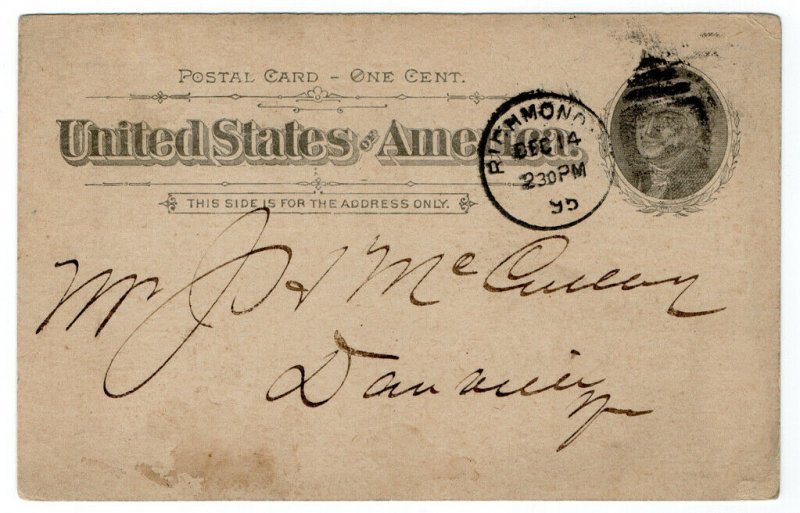 POSTAL CARD - ONE CENT.
United States of America.
RICHMOND
DEC 14
230PM
95
THIS SIDE IS FOR THE ADDRESS ONLY.
Mr J McCulloy
Danville
Va